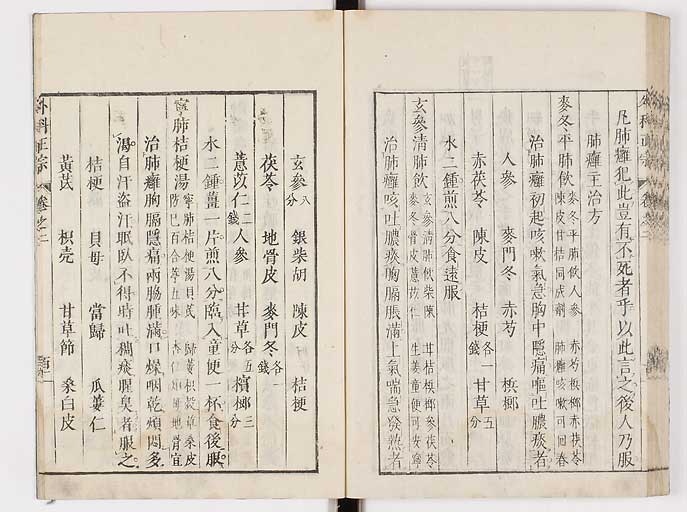 凡肺癰犯此豈有不死者乎以此言之後人乃服
肺癰主治方
麥冬平肺飲 麥冬平肺飲人參 赤芍檳榔赤茯苓
陳皮甘桔同成劑 肺癰咳嗽可回春
治肺癰初起咳嗽氣急胸中隱痛嘔吐膿痰者
人參 麥門冬 赤芍 檳榔
赤茯苓 陳皮 桔梗各一錢 甘草五分
水二鍾煎八分食遠服
玄參清肺飲 玄參清肺飲柴陳 甘桔檳榔參茯苓
麥冬骨皮薏苡仁 生姜童便可安寧
治肺癰咳吐膿痰胸膈脹滿上氣喘急發熱者
玄參八分 銀柴胡 陳皮 桔梗
茯苓 地骨皮 麥門冬各一錢
薏苡仁二錢 人參 甘草各五分 檳榔三分
水二鍾薑一片煎八分臨入童便一杯食後服
寧肺桔梗湯 寧肺桔梗湯貝芪 歸蔞枳殼草桑皮
防已百合葶五味 杏仁知母地骨宜
治肺癰胸膈隱痛兩脇腫滿口燥咽乾煩悶多
渴自汗盜汗眠臥不得時吐稠痰腥臭者服之
桔梗 貝母 當歸 瓜蔞仁
黃芪 枳壳 甘草節 桑白皮
外科正宗 卷之二